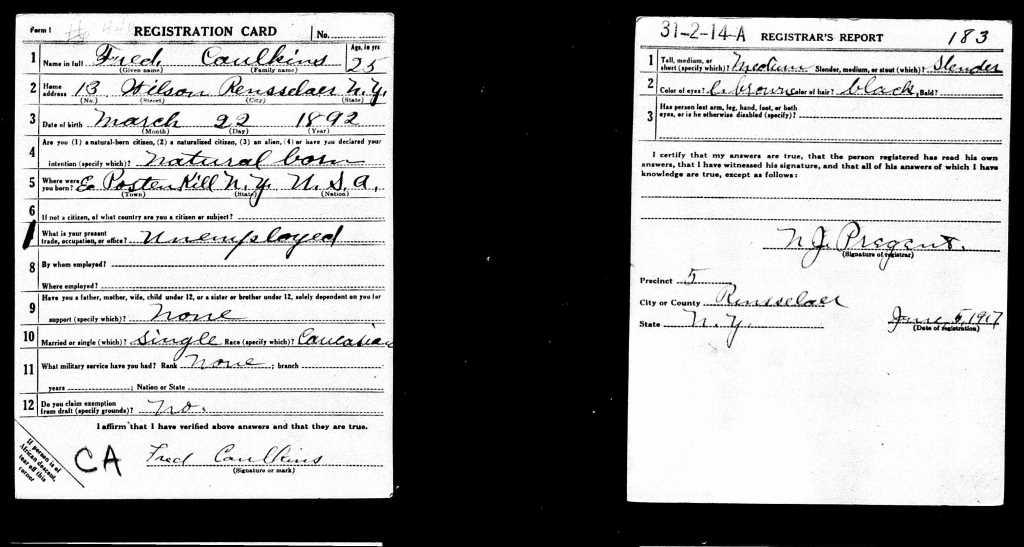 Form 1 REGISTRATION CARD No.
1 Name in full Fred Caulkins Age, in yrs 25
(Given name) (Family name)
2 Home address 13 Wilson Rensselaer N.Y.
(No.) (Street) (City) (State)
3 Date of birth March 22 1892
(Month) (Day) (Year)
4 Are you (1) a natural-born citizen, (2) a naturalized citizen, (3) an alien, (4) or have you declared your
intention (specify which)? natural born
5 Where were you born? E. Posten Kill N.Y. U.S.A.
(Town) (State) (Nation)
6 If not a citizen, of what country are you a citizen or subject?
What is your present trade, occupation, or office? Unemployed
8 By whom employed?
Where employed?
9 Have you a father, mother, wife, child under 12, or a sister or brother under 12, solely dependent on you for
support (specify which)? None
10 Married or single (which)? Single Race (specify which)? Caucasian
11 What military service have you had? Rank None ; branch
years ; Nation or State
12 Do you claim exemption from draft (specify grounds)? No.
I affirm that I have verified above answers and that they are true.
CA Fred Caulkins
(Signature or mark)
If person is of
African descent,
tear off this
corner
31-2-14-A REGISTRAR'S REPORT 183
1 Tall, medium, or short (specify which)? Medium Slender, medium, or stout (which)? Slender
2 Color of eyes? L. brown Color of hair? black Bald?
3 Has person lost arm, leg, hand, foot, or both
eyes, or is he otherwise disabled (specify)?
I certify that my answers are true, that the person registered has read his own
answers, that I have witnessed his signature, and that all of his answers of which I have
knowledge are true, except as follows:
N J. Pregent.
(Signature of registrar)
Precinct 5
City or County Rensselaer
State N.Y. June 5, 1917
(Date of registration)